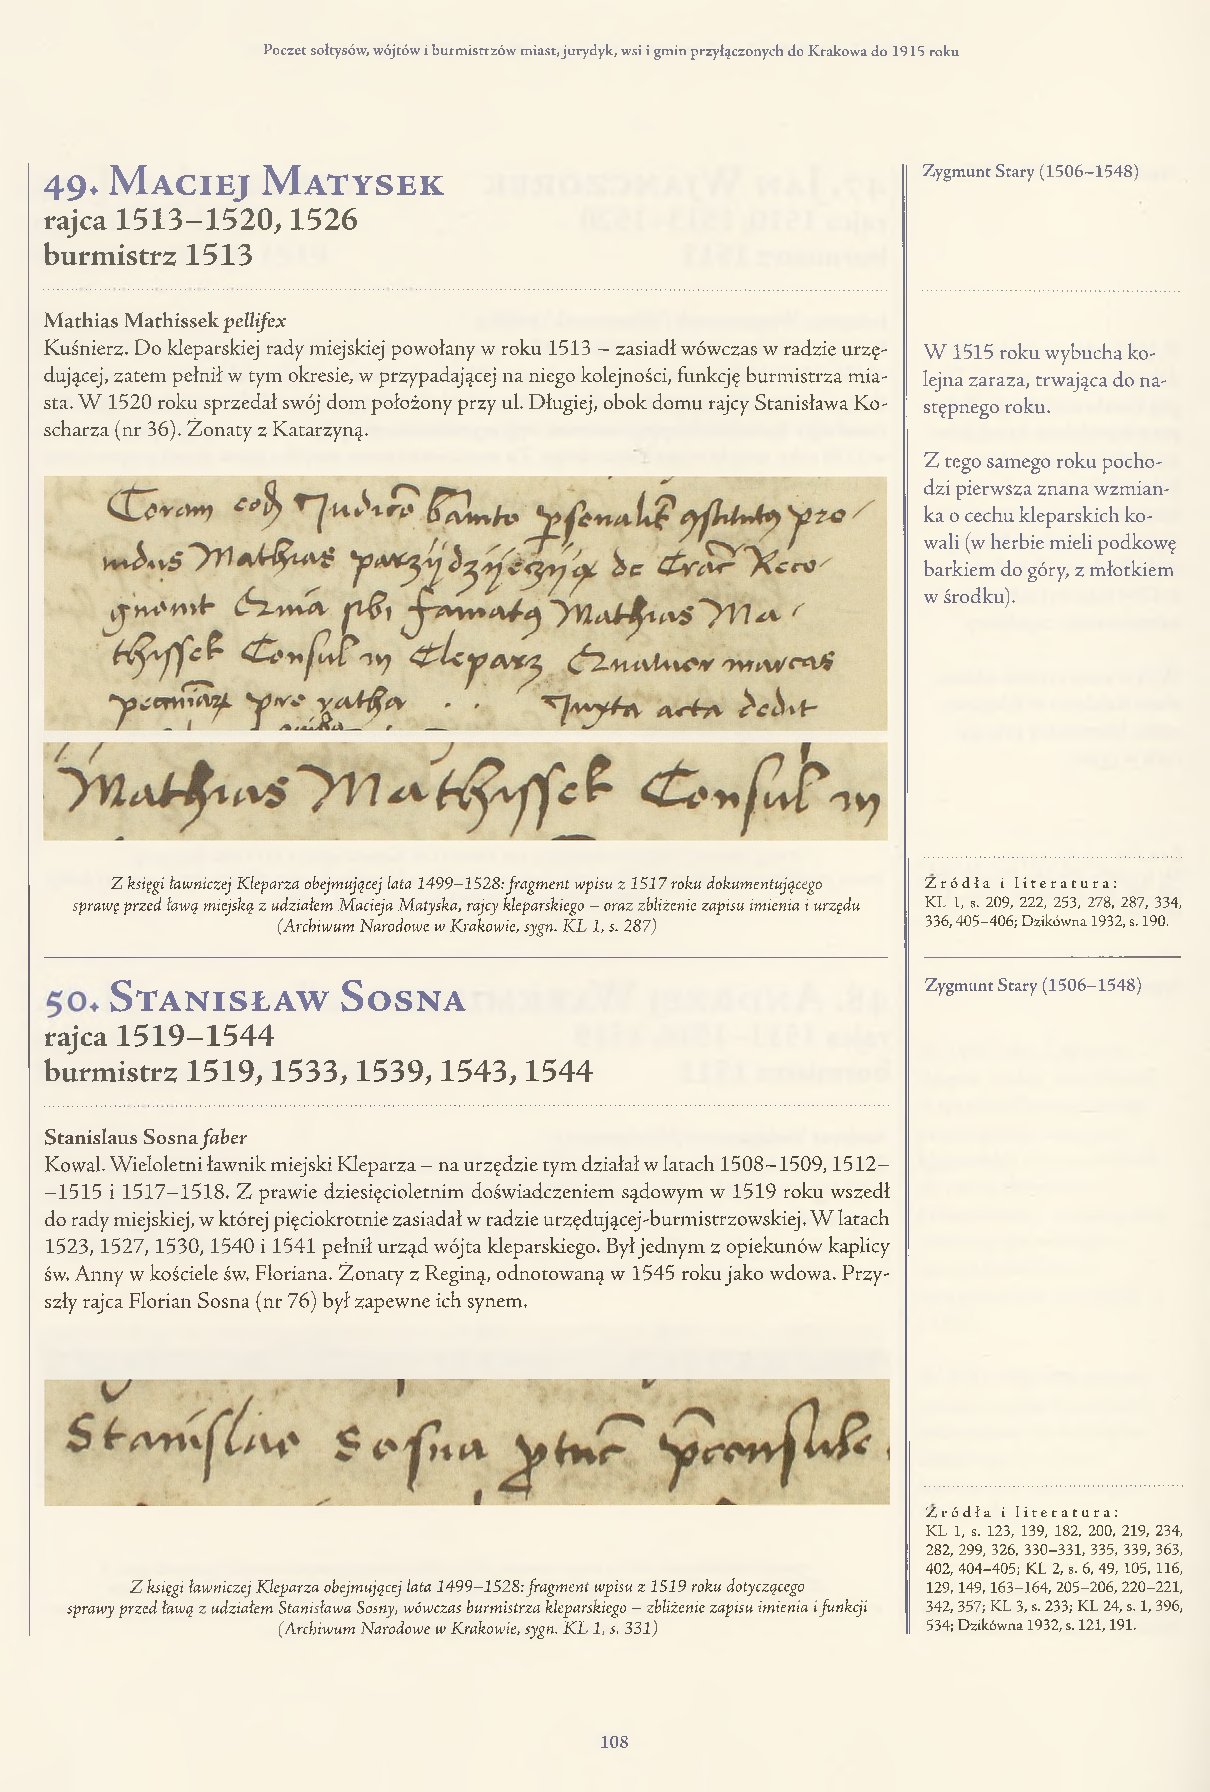 Poczet sołtysów, wójtów i burmistrzów miast, jurydyk, wsi i gmin przyłączonych do Krakowa do 1915 roku
49. Maciej Matysek
rajca 1513–1520, 1526
burmistrz 1513
Mathias Mathissek pellifex
Kuśnierz. Do kleparskiej rady miejskiej powołany w roku 1513 – zasiadł wówczas w radzie urzę-
dującej, zatem pełnił w tym okresie, w przypadającej na niego kolejności, funkcję burmistrza mia-
sta. W 1520 roku sprzedał swój dom położony przy ul. Długiej, obok domu rajcy Stanisława Ko-
scharza (nr 36). Żonaty z Katarzyną.
Coram
Mathias de
Mathias Ma
thissek Consul in Cleparz Quatuor marcas
pro ratha . . Juxta acta dedit
Mathias Mathissek Consul in
Z księgi ławniczej Kleparza obejmującej lata 1499–1528: fragment wpisu z 1517 roku dokumentującego
sprawę przed ławą miejską z udziałem Macieja Matyska, rajcy kleparskiego – oraz zbliżenie zapisu imienia i urzędu
(Archiwum Narodowe w Krakowie, sygn. KL 1, s. 287)
Zygmunt Stary (1506–1548)
W 1515 roku wybucha ko-
lejna zaraza, trwająca do na-
stępnego roku.
Z tego samego roku pocho-
dzi pierwsza znana wzmian-
ka o cechu kleparskich ko-
wali (w herbie mieli podkowę
barkiem do góry, z młotkiem
w środku).
Źródła i literatura:
KL 1, s. 209, 222, 253, 278, 287, 334,
336, 405–406; Dzikówna 1932, s. 190.
50. Stanisław Sosna
rajca 1519–1544
burmistrz 1519, 1533, 1539, 1543, 1544
Stanislaus Sosna faber
Kowal. Wieloletni ławnik miejski Kleparza – na urzędzie tym działał w latach 1508–1509, 1512–
–1515 i 1517–1518. Z prawie dziesięcioletnim doświadczeniem sądowym w 1519 roku wszedł
do rady miejskiej, w której pięciokrotnie zasiadał w radzie urzędującej-burmistrzowskiej. W latach
1523, 1527, 1530, 1540 i 1541 pełnił urząd wójta kleparskiego. Był jednym z opiekunów kaplicy
św. Anny w kościele św. Floriana. Żonaty z Reginą, odnotowaną w 1545 roku jako wdowa. Przy-
szły rajca Florian Sosna (nr 76) był zapewne ich synem.
Stanislao Sosna
Z księgi ławniczej Kleparza obejmującej lata 1499–1528: fragment wpisu z 1519 roku dotyczącego
sprawy przed ławą z udziałem Stanisława Sosny, wówczas burmistrza kleparskiego – zbliżenie zapisu imienia i funkcji
(Archiwum Narodowe w Krakowie, sygn. KL 1, s. 331)
Zygmunt Stary (1506–1548)
Źródła i literatura:
KL 1, s. 123, 139, 182, 200, 219, 234,
282, 299, 326, 330–331, 335, 339, 363,
402, 404–405; KL 2, s. 6, 49, 105, 116,
129, 149, 163–164, 205–206, 220–221,
342, 357; KL 3, s. 233; KL 24, s. 1, 396,
534; Dzikówna 1932, s. 121, 191.
108